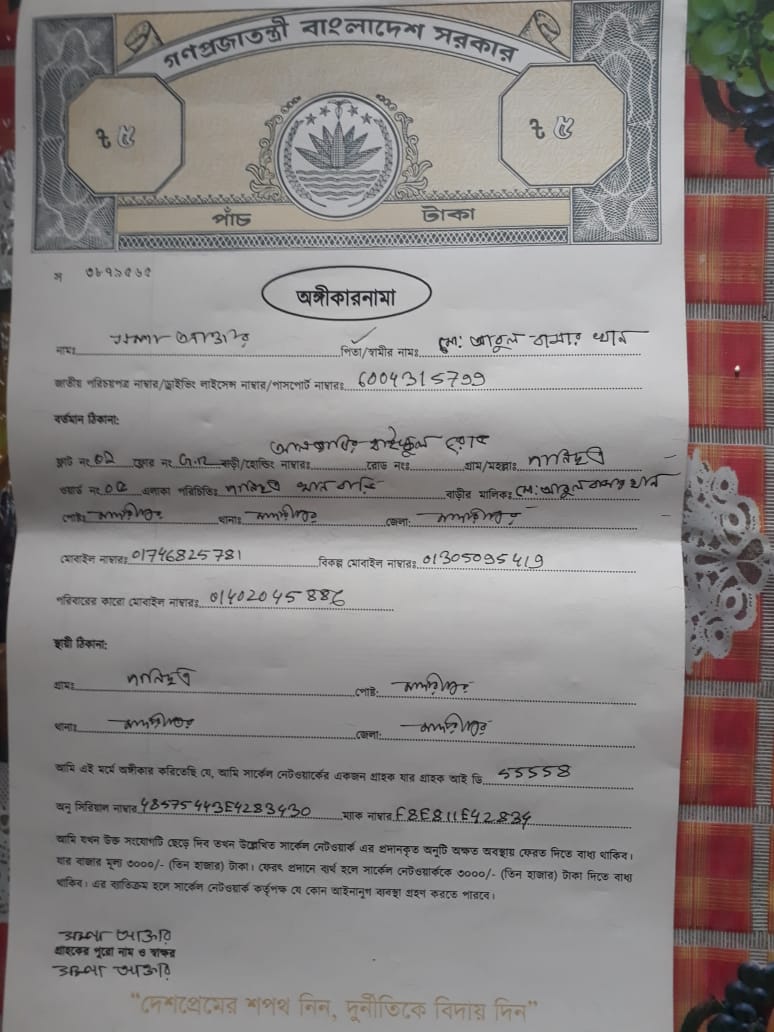 গণপ্রজাতন্ত্রী বাংলাদেশ সরকার
৳ ৫ ৳ ৫
পাঁচ টাকা
স ৩৮৭১৫৬৫
অঙ্গীকারনামা
নামঃ আক্তার পিতা/স্বামীর নামঃ মো: আবুল বাসার খান
জাতীয় পরিচয়পত্র নাম্বার/ড্রাইভিং লাইসেন্স নাম্বার/পাসপোর্ট নাম্বারঃ 6004315799
বর্তমান ঠিকানা:
হাইস্কুল রোড
ফ্লাট নং ফ্লোর নং বাড়ী/হোল্ডিং নাম্বারঃ রোড নংঃ গ্রাম/মহল্লাঃ
ওয়ার্ড নং এলাকা পরিচিতিঃ খান বাড়ি বাড়ীর মালিকঃ মো: আবুল বাসার খান
পোষ্টঃ থানাঃ জেলা:
মোবাইল নাম্বারঃ 01746825781 বিকল্প মোবাইল নাম্বারঃ 01305095419
পরিবারের কারো মোবাইল নাম্বারঃ 01402045886
স্থায়ী ঠিকানা:
গ্রামঃ পোষ্ট:
থানাঃ জেলা:
আমি এই মর্মে অঙ্গীকার করিতেছি যে, আমি সার্কেল নেটওয়ার্কের একজন গ্রাহক যার গ্রাহক আই ডি 55558
অনু সিরিয়াল নাম্বার 48575443E4283430 ম্যাক নাম্বার F8E811E42834
আমি যখন উক্ত সংযোগটি ছেড়ে দিব তখন উল্লেখিত সার্কেল নেটওয়ার্ক এর প্রদানকৃত অনুটি অক্ষত অবস্থায় ফেরত দিতে বাধ্য থাকিব।
যার বাজার মূল্য ৩০০০/- (তিন হাজার) টাকা। ফেরৎ প্রদানে ব্যর্থ হলে সার্কেল নেটওয়ার্ককে ৩০০০/- (তিন হাজার) টাকা দিতে বাধ্য
থাকিব। এর ব্যতিক্রম হলে সার্কেল নেটওয়ার্ক কর্তৃপক্ষ যে কোন আইনানুগ ব্যবস্থা গ্রহণ করতে পারবে।
আক্তার
গ্রাহকের পুরো নাম ও স্বাক্ষর
আক্তার
"দেশপ্রেমের শপথ নিন, দুর্নীতিকে বিদায় দিন"